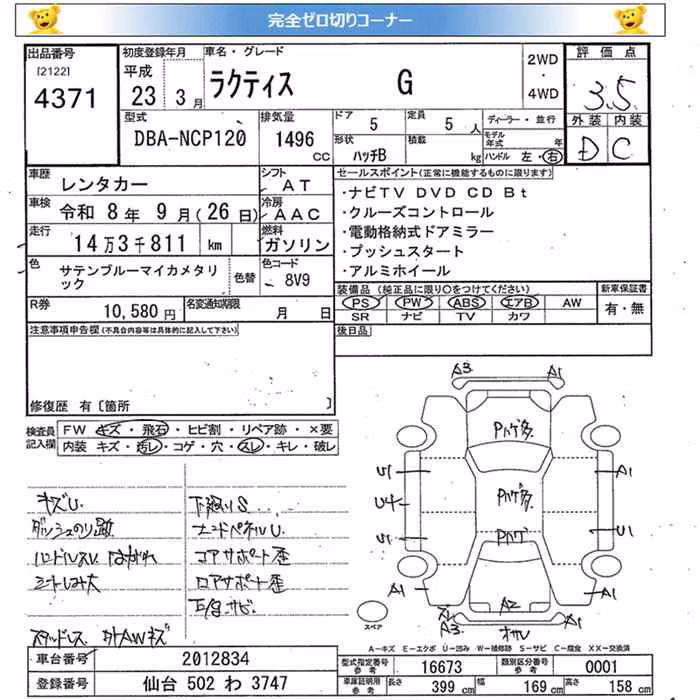 完全ゼロ切りコーナー
出品番号
[2122]
4371
初度登録年月
平成
23 3月
車名・グレード
ラクティス G
2WD
・
4WD
評価点
3.5
外装 内装
D C
型式
DBA-NCP120
排気量
1496
CC
ドア
5
定員
5 人
形状
ハッチB
積載
kg
ディーラー・並行
モデル年式 年
ハンドル 左・右
車歴
レンタカー
シフト
AT
車検
令和 8年 9月(26日)
冷房
AAC
走行
14万3千811 km
燃料
ガソリン
色
サテンブルーマイカメタリック
色替
色コード
8V9
R券
10,580 円
名変通知期限
月 日
セールスポイント(正常に機能するものに限ります)
・ナビTV DVD CD Bt
・クルーズコントロール
・電動格納式ドアミラー
・プッシュスタート
・アルミホイール
装備品(純正品に限り〇をつけてください)
PS PW ABS エアB AW
SR ナビ TV カワ
新車保証書
有・無
後日品
注意事項申告欄(不具合内容等は具体的に記入して下さい)
修復歴 有〔箇所 〕
検査員記入欄
FW キズ・飛石・ヒビ割・リペア跡・×要
内装 キズ・汚レ・コゲ・穴・スレ・キレ・破レ
キズU
ダッシュのり跡
ハンドルスレ はがれ
シートしみ大
下廻りS
エンドパネルU
コアサポート歪
ロアサポート歪
スタッドレス 外AWキズ
A3 A1
Pハゲ多
U1 A1
U4
Pハゲ多
U1 Pハゲ U1
A1 A2 A1
スペア
ズレ
A3
A1
A-キズ E-エクボ U-凹み W-補修跡 S-サビ C-腐食 XX-交換済
車台番号
2012834
登録番号
仙台 502 わ 3747
型式指定番号
参考
16673
類別区分番号
参考
0001
車庫証明用
参考
長さ 399 cm 幅 169 cm 高さ 158 cm